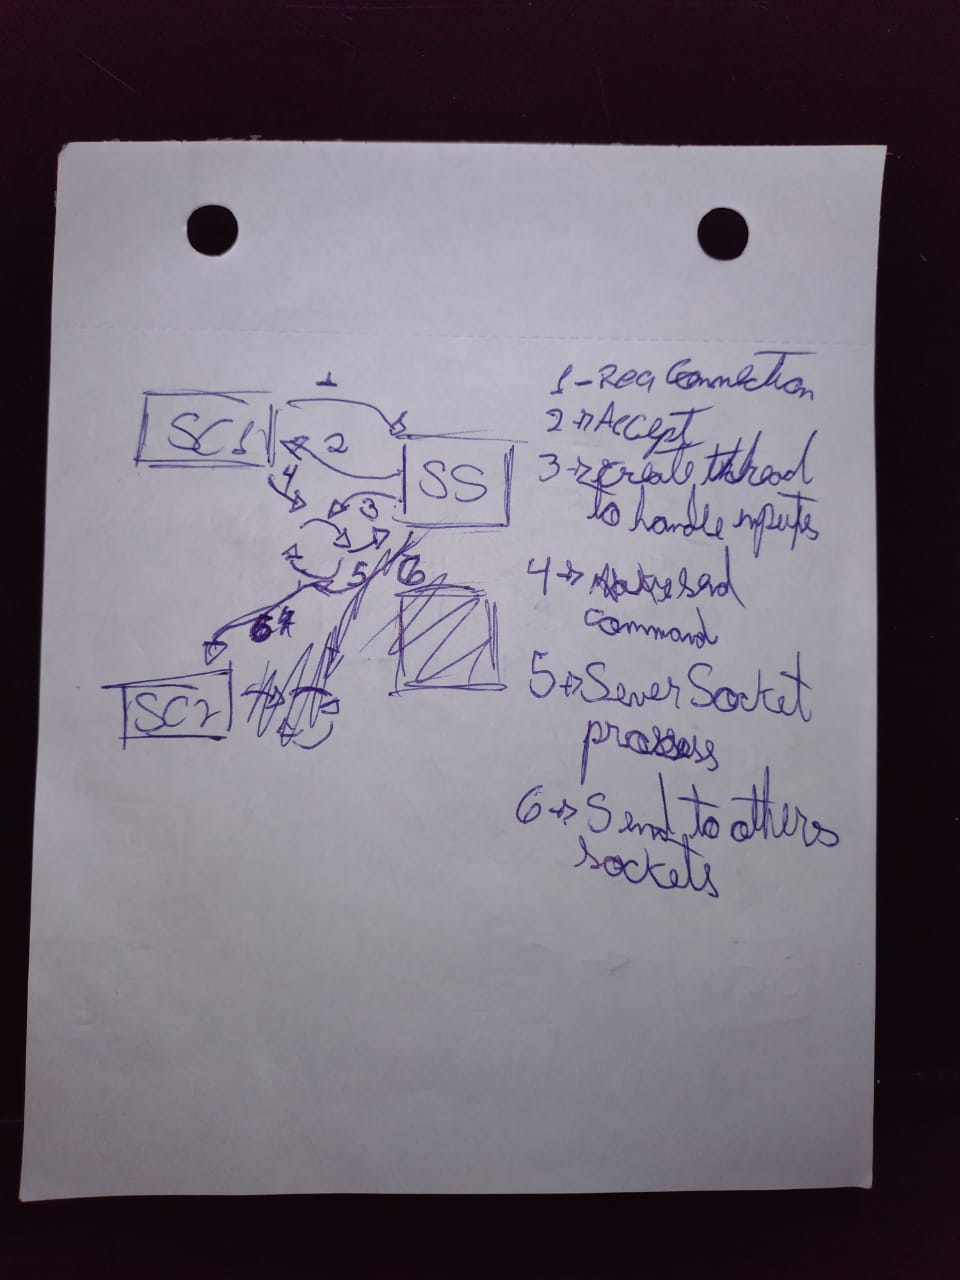 1
SC1
2
SS
4
3
5
6
6
SC2
1-Req Connection
2→Accept
3→create thread
to handle inputs
4→ send
command
5→Sever Socket
prossess
6→Send to others
sockets